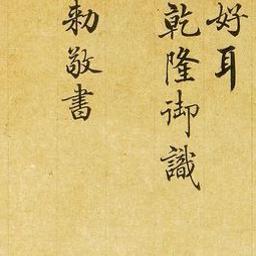 好耳
乾隆御識
勅敬書